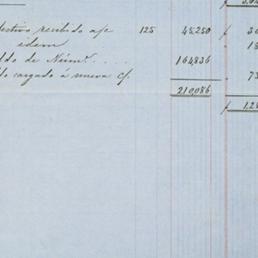 ƒ
ectivo recibido a/c 125 45,250 ƒ
idem
do de Núm.º .... 164,836
o cargado á nueva c/.
210,086
ƒ 1,2